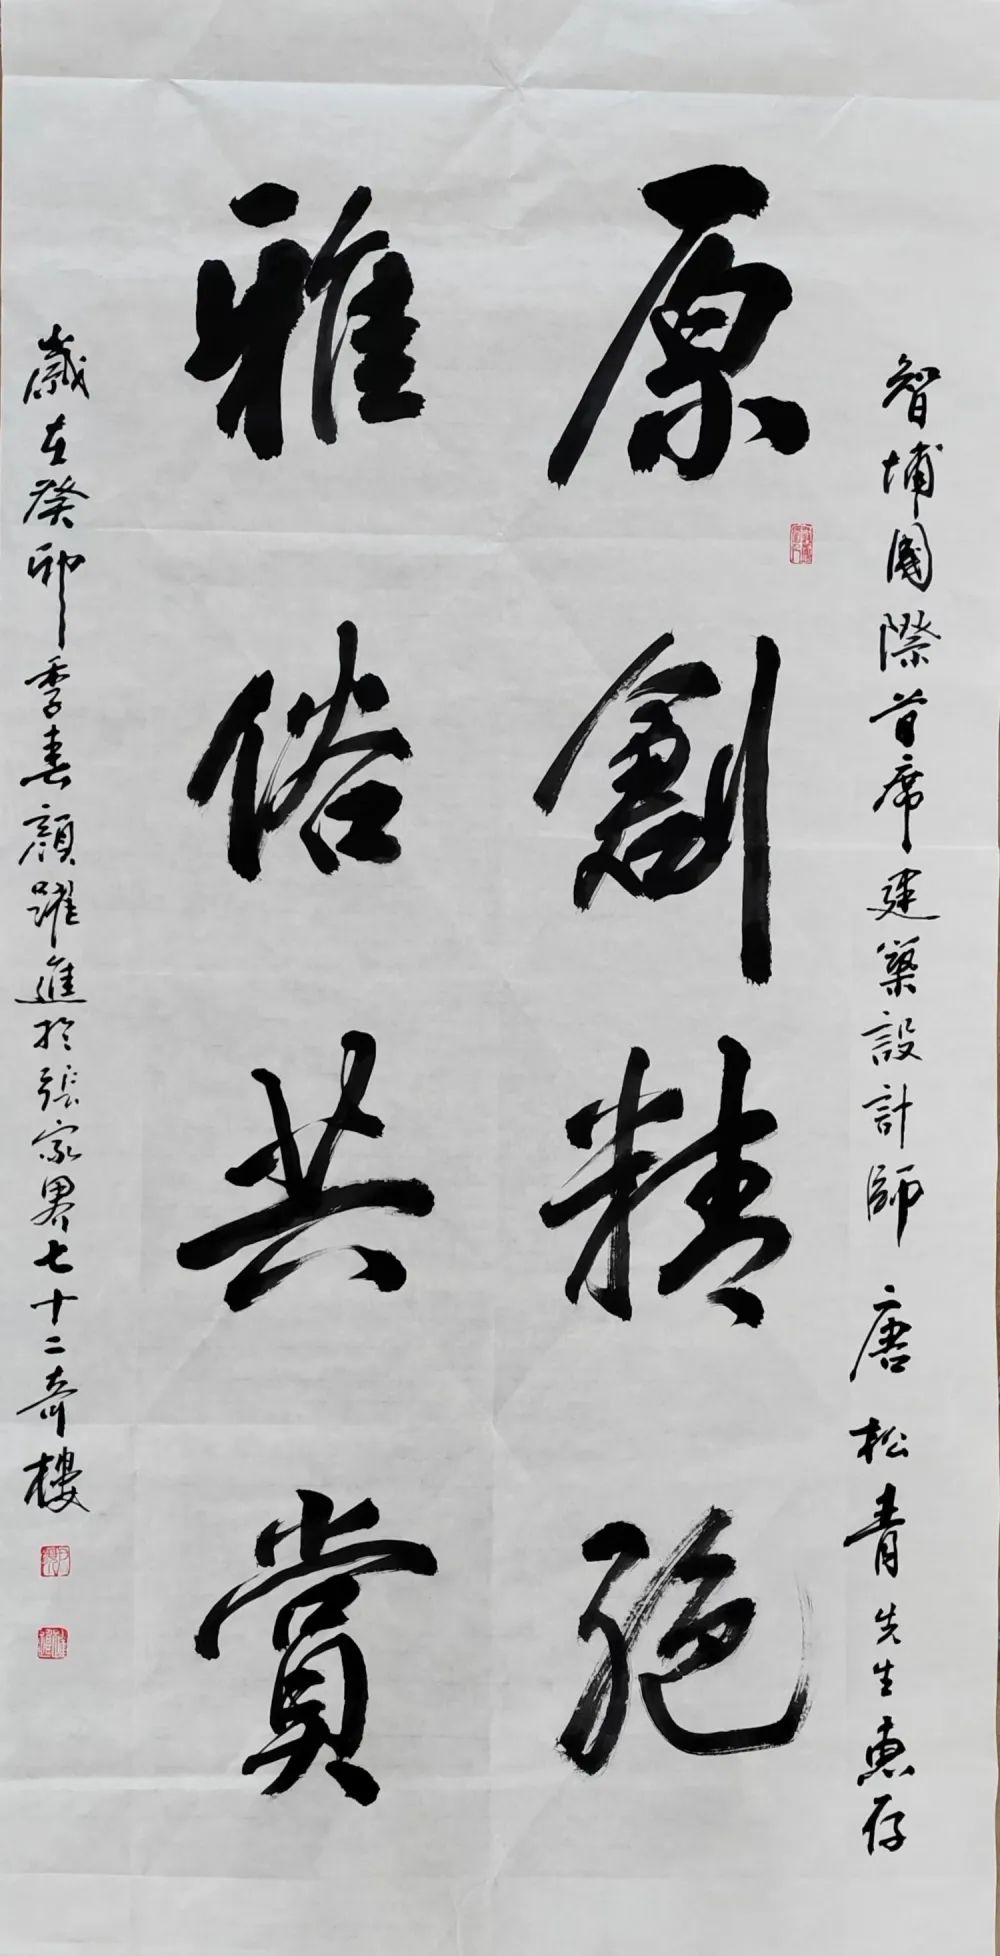 智埔國際首席建築設計師唐松青先生惠存
原創精絶
雅俗共賞
歲在癸卯季春顏躍進於張家界七十二奇樓